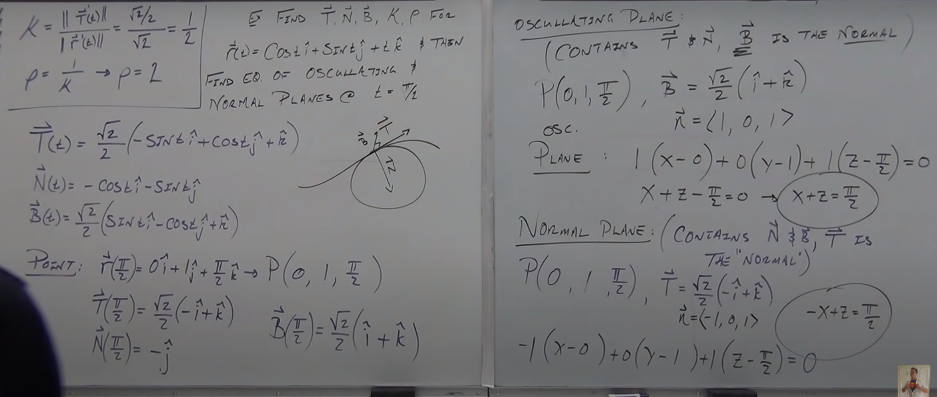 K = ||T⃗'(t)|| / ||r⃗'(t)|| = (√2/2) / √2 = 1/2
ρ = 1/K → ρ = 2
Ex FIND T⃗, N⃗, B⃗, K, ρ FOR
r⃗(t) = Cost î + Sint ĵ + t k̂ & THEN
FIND EQ. OF OSCULLATING &
NORMAL PLANES @ t = π/2
T⃗(t) = √2/2 (-SINt î + COSt ĵ + k̂)
N⃗(t) = -COSt î - SINt ĵ
B⃗(t) = √2/2 (SINt î - COSt ĵ + k̂)
B⃗ T⃗
N⃗
POINT: r⃗(π/2) = 0î + 1ĵ + π/2 k̂ → P(0, 1, π/2)
T⃗(π/2) = √2/2 (-î + k̂)
N⃗(π/2) = -ĵ
B⃗(π/2) = √2/2 (î + k̂)
OSCULLATING PLANE:
(CONTAINS T⃗ & N⃗, B⃗ IS THE NORMAL)
P(0, 1, π/2), B⃗ = √2/2 (î + k̂)
n⃗ = ⟨1, 0, 1⟩
OSC.
PLANE: 1(X-0) + 0(Y-1) + 1(Z-π/2) = 0
X + Z - π/2 = 0 → X + Z = π/2
NORMAL PLANE: (CONTAINS N⃗ & B⃗, T⃗ IS
THE "NORMAL")
P(0, 1, π/2), T⃗ = √2/2 (-î + k̂)
n⃗ = ⟨-1, 0, 1⟩
-X + Z = π/2
-1(X-0) + 0(Y-1) + 1(Z-π/2) = 0